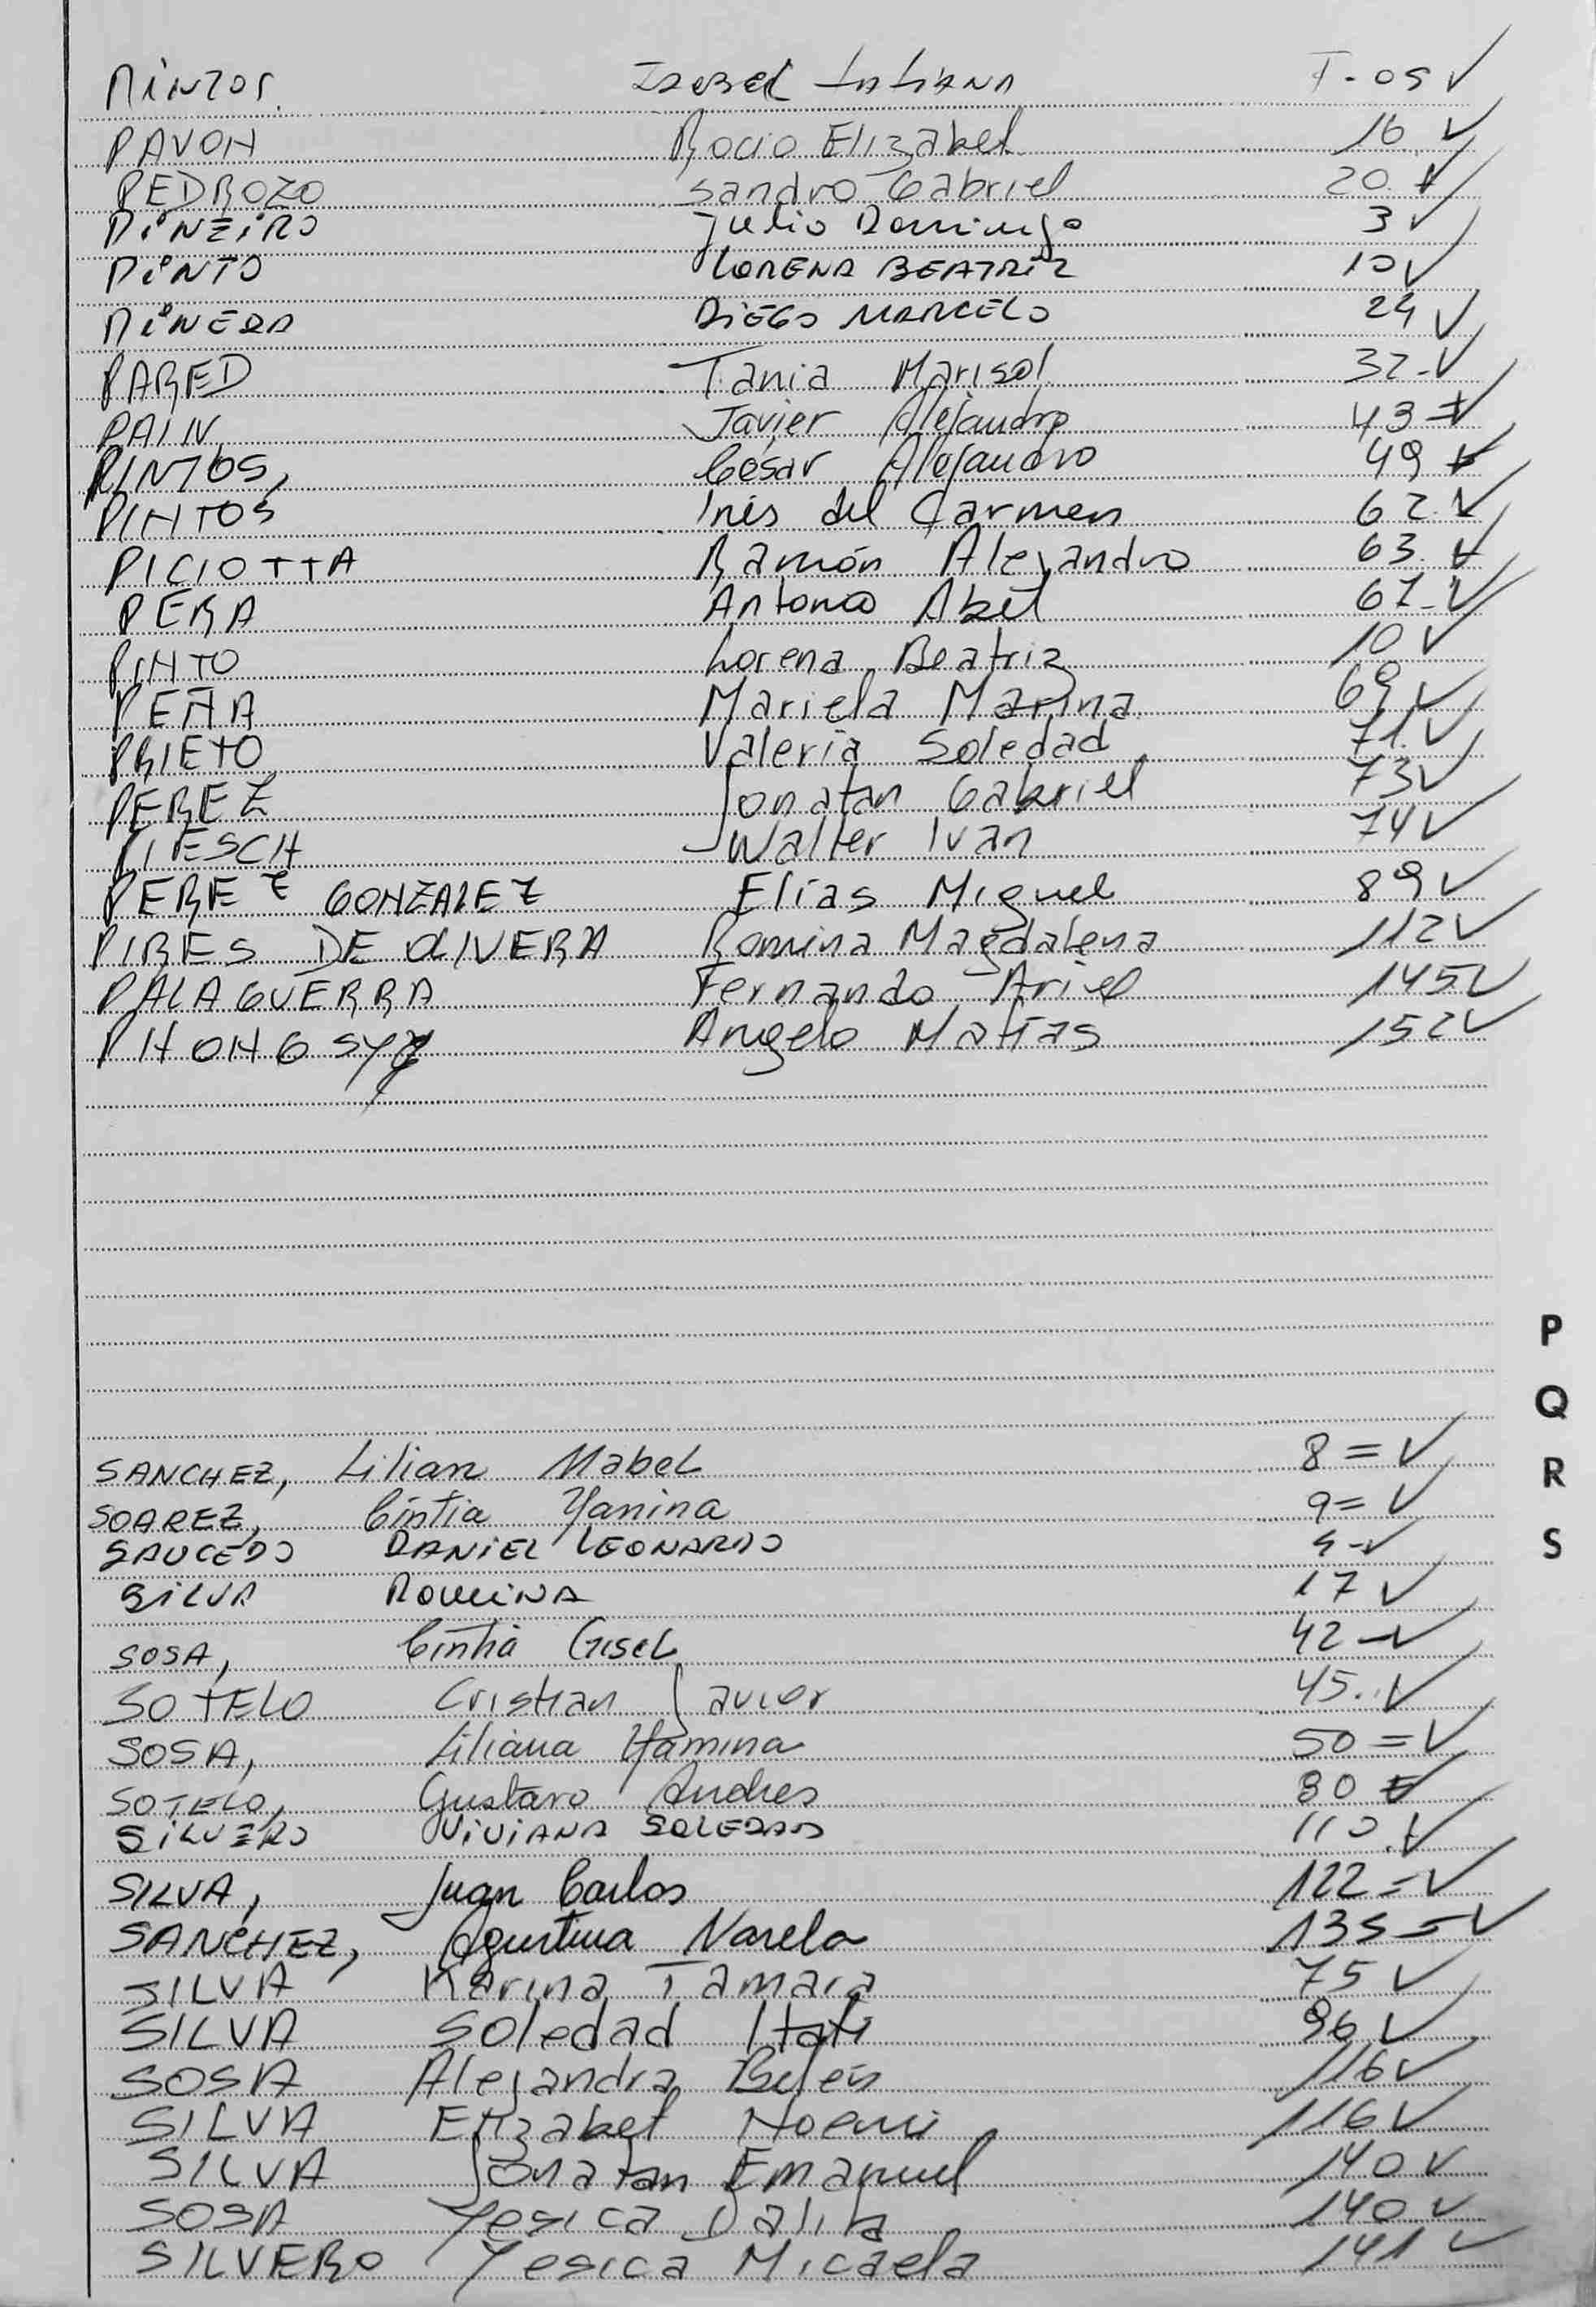 PINTOS Isabel Tatiana T-05 ✓
PAVON Rocio Elizabet 16 ✓
PEDROZO Sandro Gabriel 20 ✓
PIÑEIRO Julio Domingo 3 ✓
PINTO LORENA BEATRIZ 10 ✓
PINEDA DIEGO MARCELO 24 ✓
PARED Tania Marisol 32-✓
Javier Alejandro 43 =✓
PINTOS, César Alejandro 49 ✓
PINTOS Inés del Carmen 62 ✓
PICIOTTA Ramón Alejandro 63 ✓
PERA Antonio Abel 67-✓
PINTO Lorena Beatriz 10 ✓
PEÑA Mariela Marina 69 ✓
PRIETO Valeria Soledad 71 ✓
PEREZ Jonatan Gabriel 73 ✓
PIESCH Walter Ivan 74 ✓
PEREZ GONZALEZ Elias Miguel 89 ✓
PIRES DE OLIVERA Romina Magdalena 112 ✓
PALAGUERRA Fernando Ariel 145 ✓
Angelo Matias 152 ✓
P
Q
R
S
SANCHEZ, Lilian Mabel 8 = ✓
SOAREZ, Cintia Yanina 9 = ✓
SAUCEDO DANIEL LEONARDO ✓
SILVA ROMINA 17 ✓
SOSA, Cintia Gisel 42 -✓
SOTELO Cristian Javier 45. ✓
SOSA, Liliana Yamina 50 = ✓
SOTELO, Gustavo Andres 80 = ✓
SILVERO VIVIANA SOLEDAD 110 ✓
SILVA, Juan Carlos 122 = ✓
SANCHEZ, Agustina Narela 135 = ✓
SILVA Karina Tamara 75 ✓
SILVA Soledad Itati 96 ✓
SOSA Alejandra Belén 116 ✓
SILVA Elizabet Noemi 116 ✓
SILVA Jonatan Emanuel 140 ✓
SOSA Yesica Dalila 140 ✓
SILVERO Yesica Micaela 141 ✓